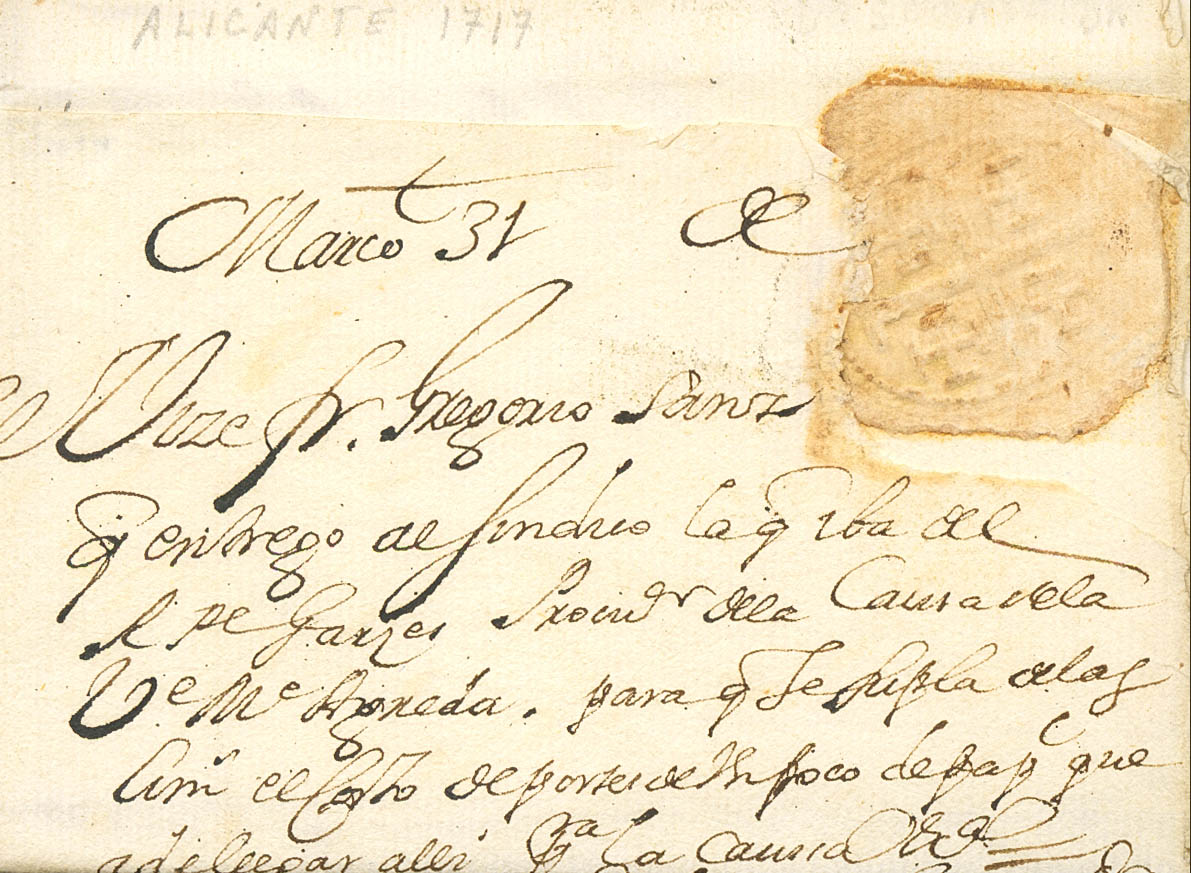 ALICANTE 1717
Março 31 de
Dize fr. Gregorio Sanz
q entrego al Sindico la q iba del
R Pe Garzes Procudr dela Causa dela
Ve Me Agreda. para q Se Supla delas
Lims el Costo de portes de Un poco de pap que
a de llegar alli pa La Causa